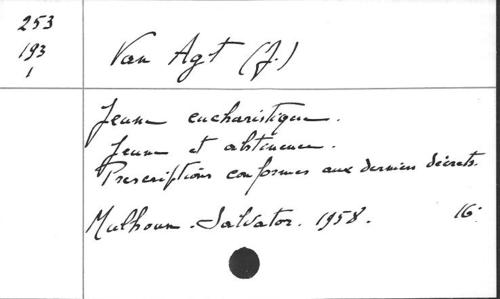 253
193
1
Van Agt (J.)
Jeune eucharistique.
Jeune et abstinence.
Prescriptions conformes aux derniers décrets.
Mulhouse. Salvator. 1958. 16°